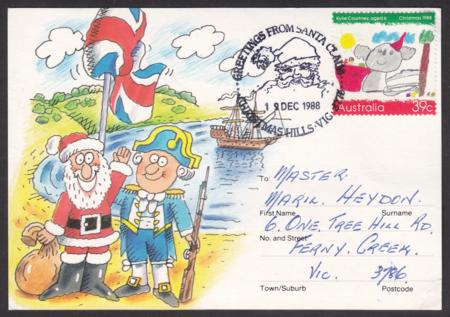 Kylie Courtney, aged 6 Christmas 1988
Australia 39c
GREETINGS FROM SANTA CLAUS
19 DEC 1988
CHRISTMAS HILLS · VIC
To: MASTER
MARK HEYDON.
First Name Surname
6. ONE TREE HILL RD,
No. and Street
FERNY CREEK.
VIC. 3786
Town/Suburb Postcode